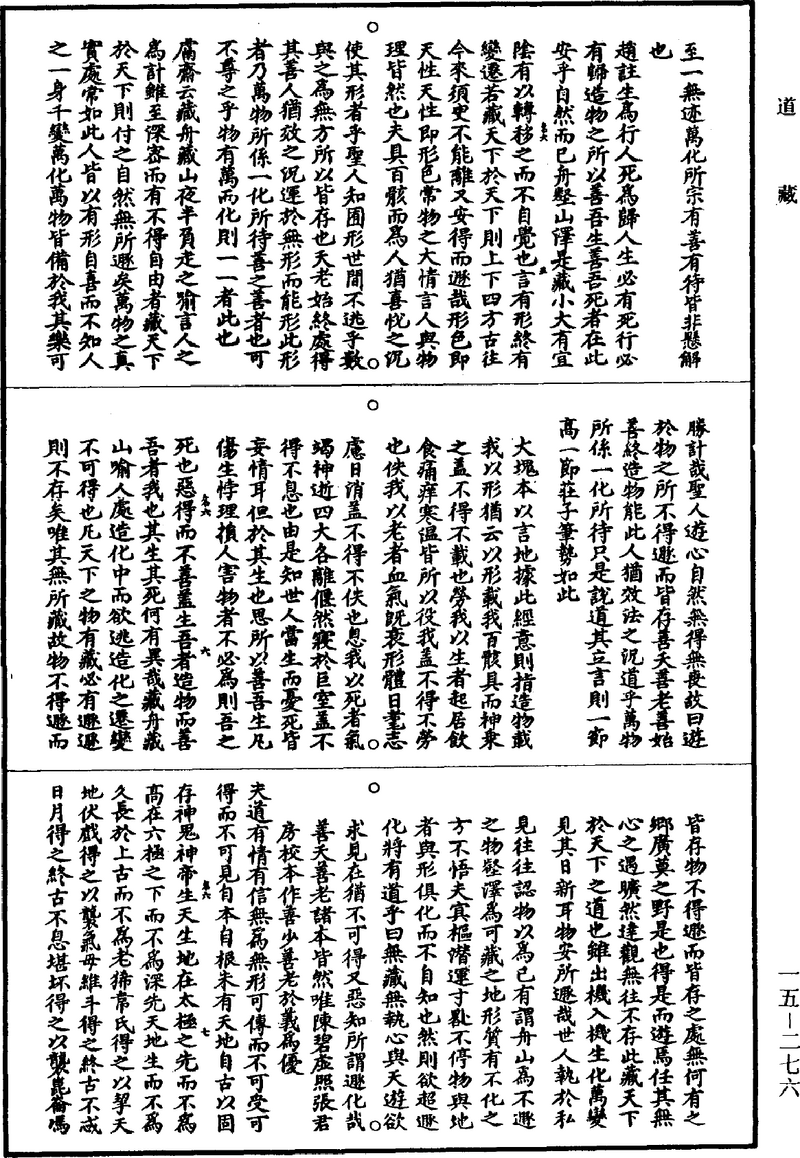 道藏
至一無迹萬化所宗有善有待皆非懸解
也
趙註生為行人死為歸人生必有死行必
有歸造物之所以善吾生善吾死者在此
安乎自然而已舟壑山澤是藏小大有宜
陰有以轉移之而不自覺也言有形終有
變遷若藏天下於天下則上下四方古往
今來須臾不能離又安得而遯哉形色即
天性天性即形色常物之大情言人與物
理皆然也夫具百骸而為人猶喜悅之況
使其形者乎聖人知囿形世間不逃乎數
與之為無方所以皆存也夭老始終處得
其善人猶效之況運於無形而能形此形
者乃萬物所係一化所待善之善者也可
不尊之乎物有萬而化則一一者此也
鬳齋云藏舟藏山夜半負走之喻言人之
為計雖至深密而有不得自由者藏天下
於天下則付之自然無所遯矣萬物之真
實處常如此人皆以有形自喜而不知人
之一身千變萬化萬物皆備於我其樂可
勝計哉聖人遊心自然無得無喪故曰遊
於物之所不得遯而皆存善夭善老善始
善終造物能此人猶效法之況道乎萬物
所係一化所待只是說道其立言則一節
高一節莊子筆勢如此
大塊本以言地據此經意則指造物載
我以形猶云以形載我百骸具而神乘
之蓋不得不載也勞我以生者起居飲
食痛痒寒溫皆所以役我蓋不得不勞
也佚我以老者血氣既衰形體日耄志
慮日消蓋不得不佚也息我以死者氣
竭神逝四大各離偃然寢於巨室蓋不
得不息也由是知世人當生而憂死皆
妄情耳但於其生也思所以善吾生凡
傷生悖理損人害物者不必為則吾之
死也惡得而不善蓋生吾者造物而善
吾者我也其生其死何有異哉藏舟藏
山喻人處造化中而欲逃造化之遷變
不可得也凡天下之物有藏必有遯遯
則不存矣唯其無所藏故物不得遯而
皆存物不得遯而皆存之處無何有之
鄉廣莫之野是也得是而遊焉任其無
心之遇曠然達觀無往不存此藏天下
於天下之道也雖出機入機生化萬變
見其日新耳物安所遯哉世人執於私
見往往認物以為己有謂舟山為不遯
之物壑澤為可藏之地形質有不化之
方不悟夫寘樞潛運寸晷不停物與地
者與形俱化而不自知也然則欲超遯
化將有道乎曰無藏無執心與天遊欲
求見在猶不可得又惡知所謂遯化哉
善夭善老諸本皆然唯陳碧虛照張君
房校本作善少善老於義為優
夫道有情有信無為無形可傳而不可受可
得而不可見自本自根未有天地自古以固
存神鬼神帝生天生地在太極之先而不為
高在六極之下而不為深先天地生而不為
久長於上古而不為老狶韋氏得之以挈天
地伏戲得之以襲氣母維斗得之終古不忒
日月得之終古不息堪坏得之以襲崑崙馮
一五－二七六